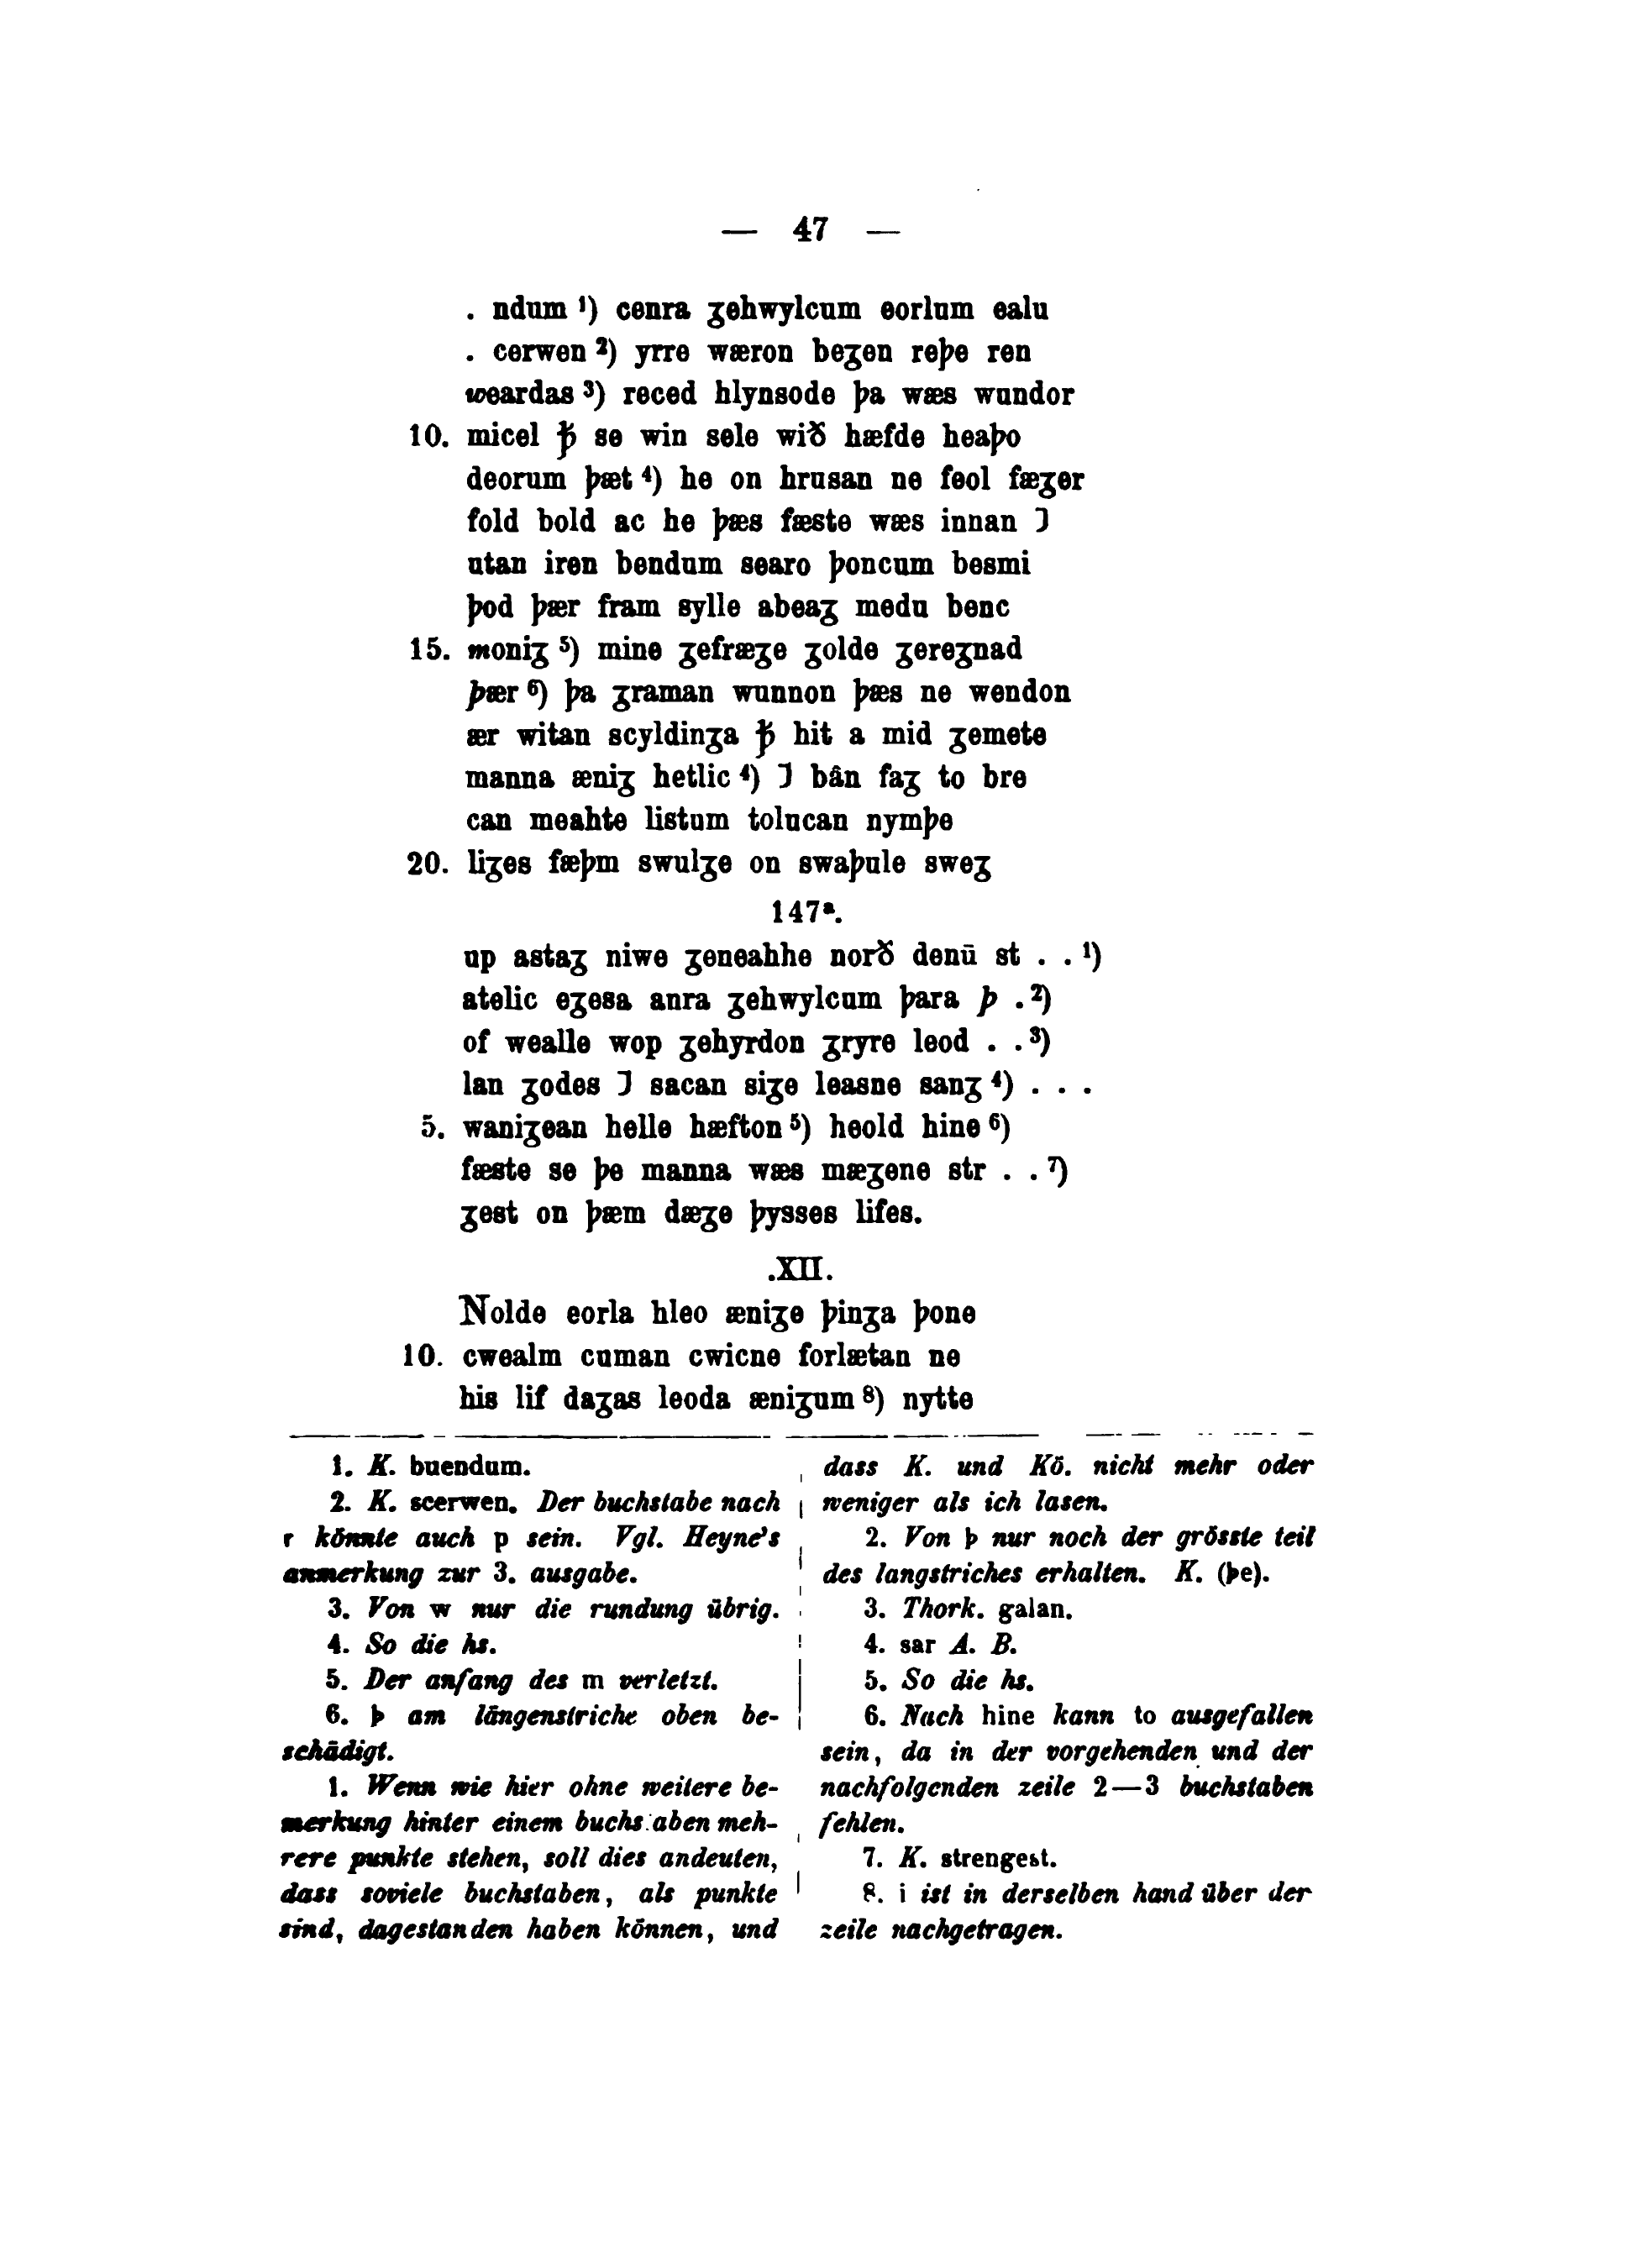 — 47 —
. ndum ¹) cenra ʒehwylcum eorlum ealu
. cerwen ²) yrre wæron beʒen reþe ren
weardas ³) reced hlynsode þa wæs wundor
10. micel ꝥ se win sele wið hæfde heaþo
deorum þæt ⁴) he on hrusan ne feol fæʒer
fold bold ac he þæs fæste wæs innan ⁊
utan iren bendum searo þoncum besmi
þod þær fram sylle abeaʒ medu benc
15. moniʒ ⁵) mine ʒefræʒe ʒolde ʒereʒnad
þær ⁶) þa ʒraman wunnon þæs ne wendon
ær witan scyldinʒa ꝥ hit a mid ʒemete
manna æniʒ hetlic ⁴) ⁊ bân faʒ to bre
can meahte listum tolucan nymþe
20. liʒes fæþm swulʒe on swaþule sweʒ
147ª.
up astaʒ niwe ʒeneahhe norð denū st . . ¹)
atelic eʒesa anra ʒehwylcum þara þ . ²)
of wealle wop ʒehyrdon ʒryre leod . . ³)
lan ʒodes ⁊ sacan siʒe leasne sanʒ ⁴) . . .
5. waniʒean helle hæfton ⁵) heold hine ⁶)
fæste se þe manna wæs mæʒene str . . ⁷)
ʒest on þæm dæʒe þysses lifes.
.XII.
Nolde eorla hleo æniʒe þinʒa þone
10. cwealm cuman cwicne forlætan ne
his lif daʒas leoda æniʒum ⁸) nytte
1. K. buendum.
2. K. scerwen. Der buchstabe nach
r könnte auch p sein. Vgl. Heyne's
anmerkung zur 3. ausgabe.
3. Von w nur die rundung übrig.
4. So die hs.
5. Der anfang des m verletzt.
6. þ am längenstriche oben be-
schädigt.
1. Wenn wie hier ohne weitere be-
merkung hinter einem buchstaben meh-
rere punkte stehen, soll dies andeuten,
dass soviele buchstaben, als punkte
sind, dagestanden haben können, und
dass K. und Kö. nicht mehr oder
weniger als ich lasen.
2. Von þ nur noch der grösste teil
des langstriches erhalten. K. (þe).
3. Thork. galan.
4. sar A. B.
5. So die hs.
6. Nach hine kann to ausgefallen
sein, da in der vorgehenden und der
nachfolgenden zeile 2—3 buchstaben
fehlen.
7. K. strengest.
8. i ist in derselben hand über der
zeile nachgetragen.